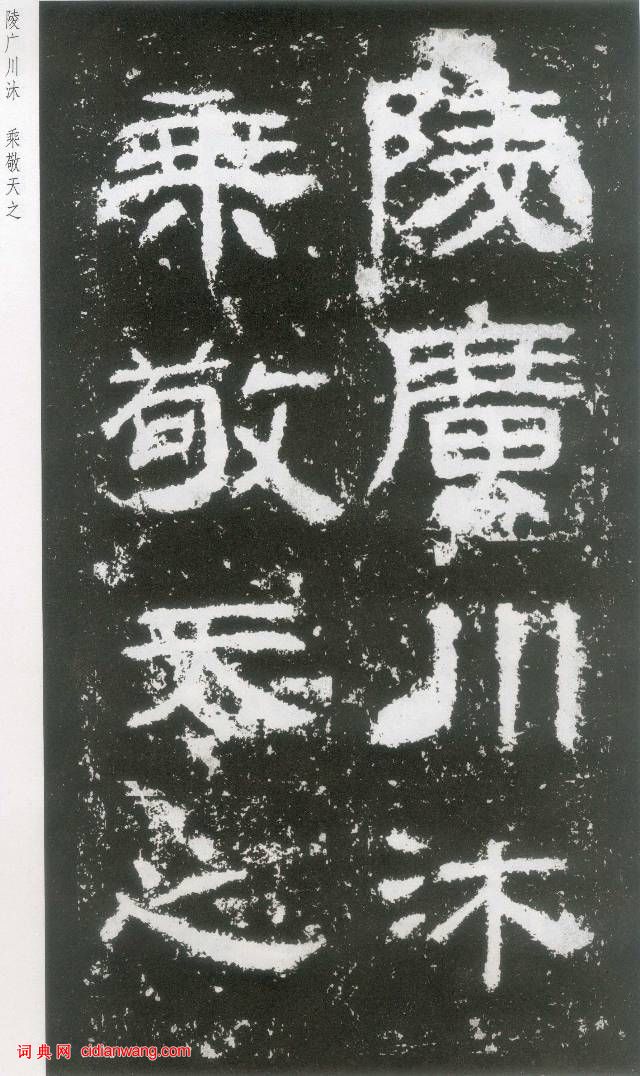 陵廣川沐
乘敬天之
陵广川沐 乘敬天之
词典网 cidianwang.com